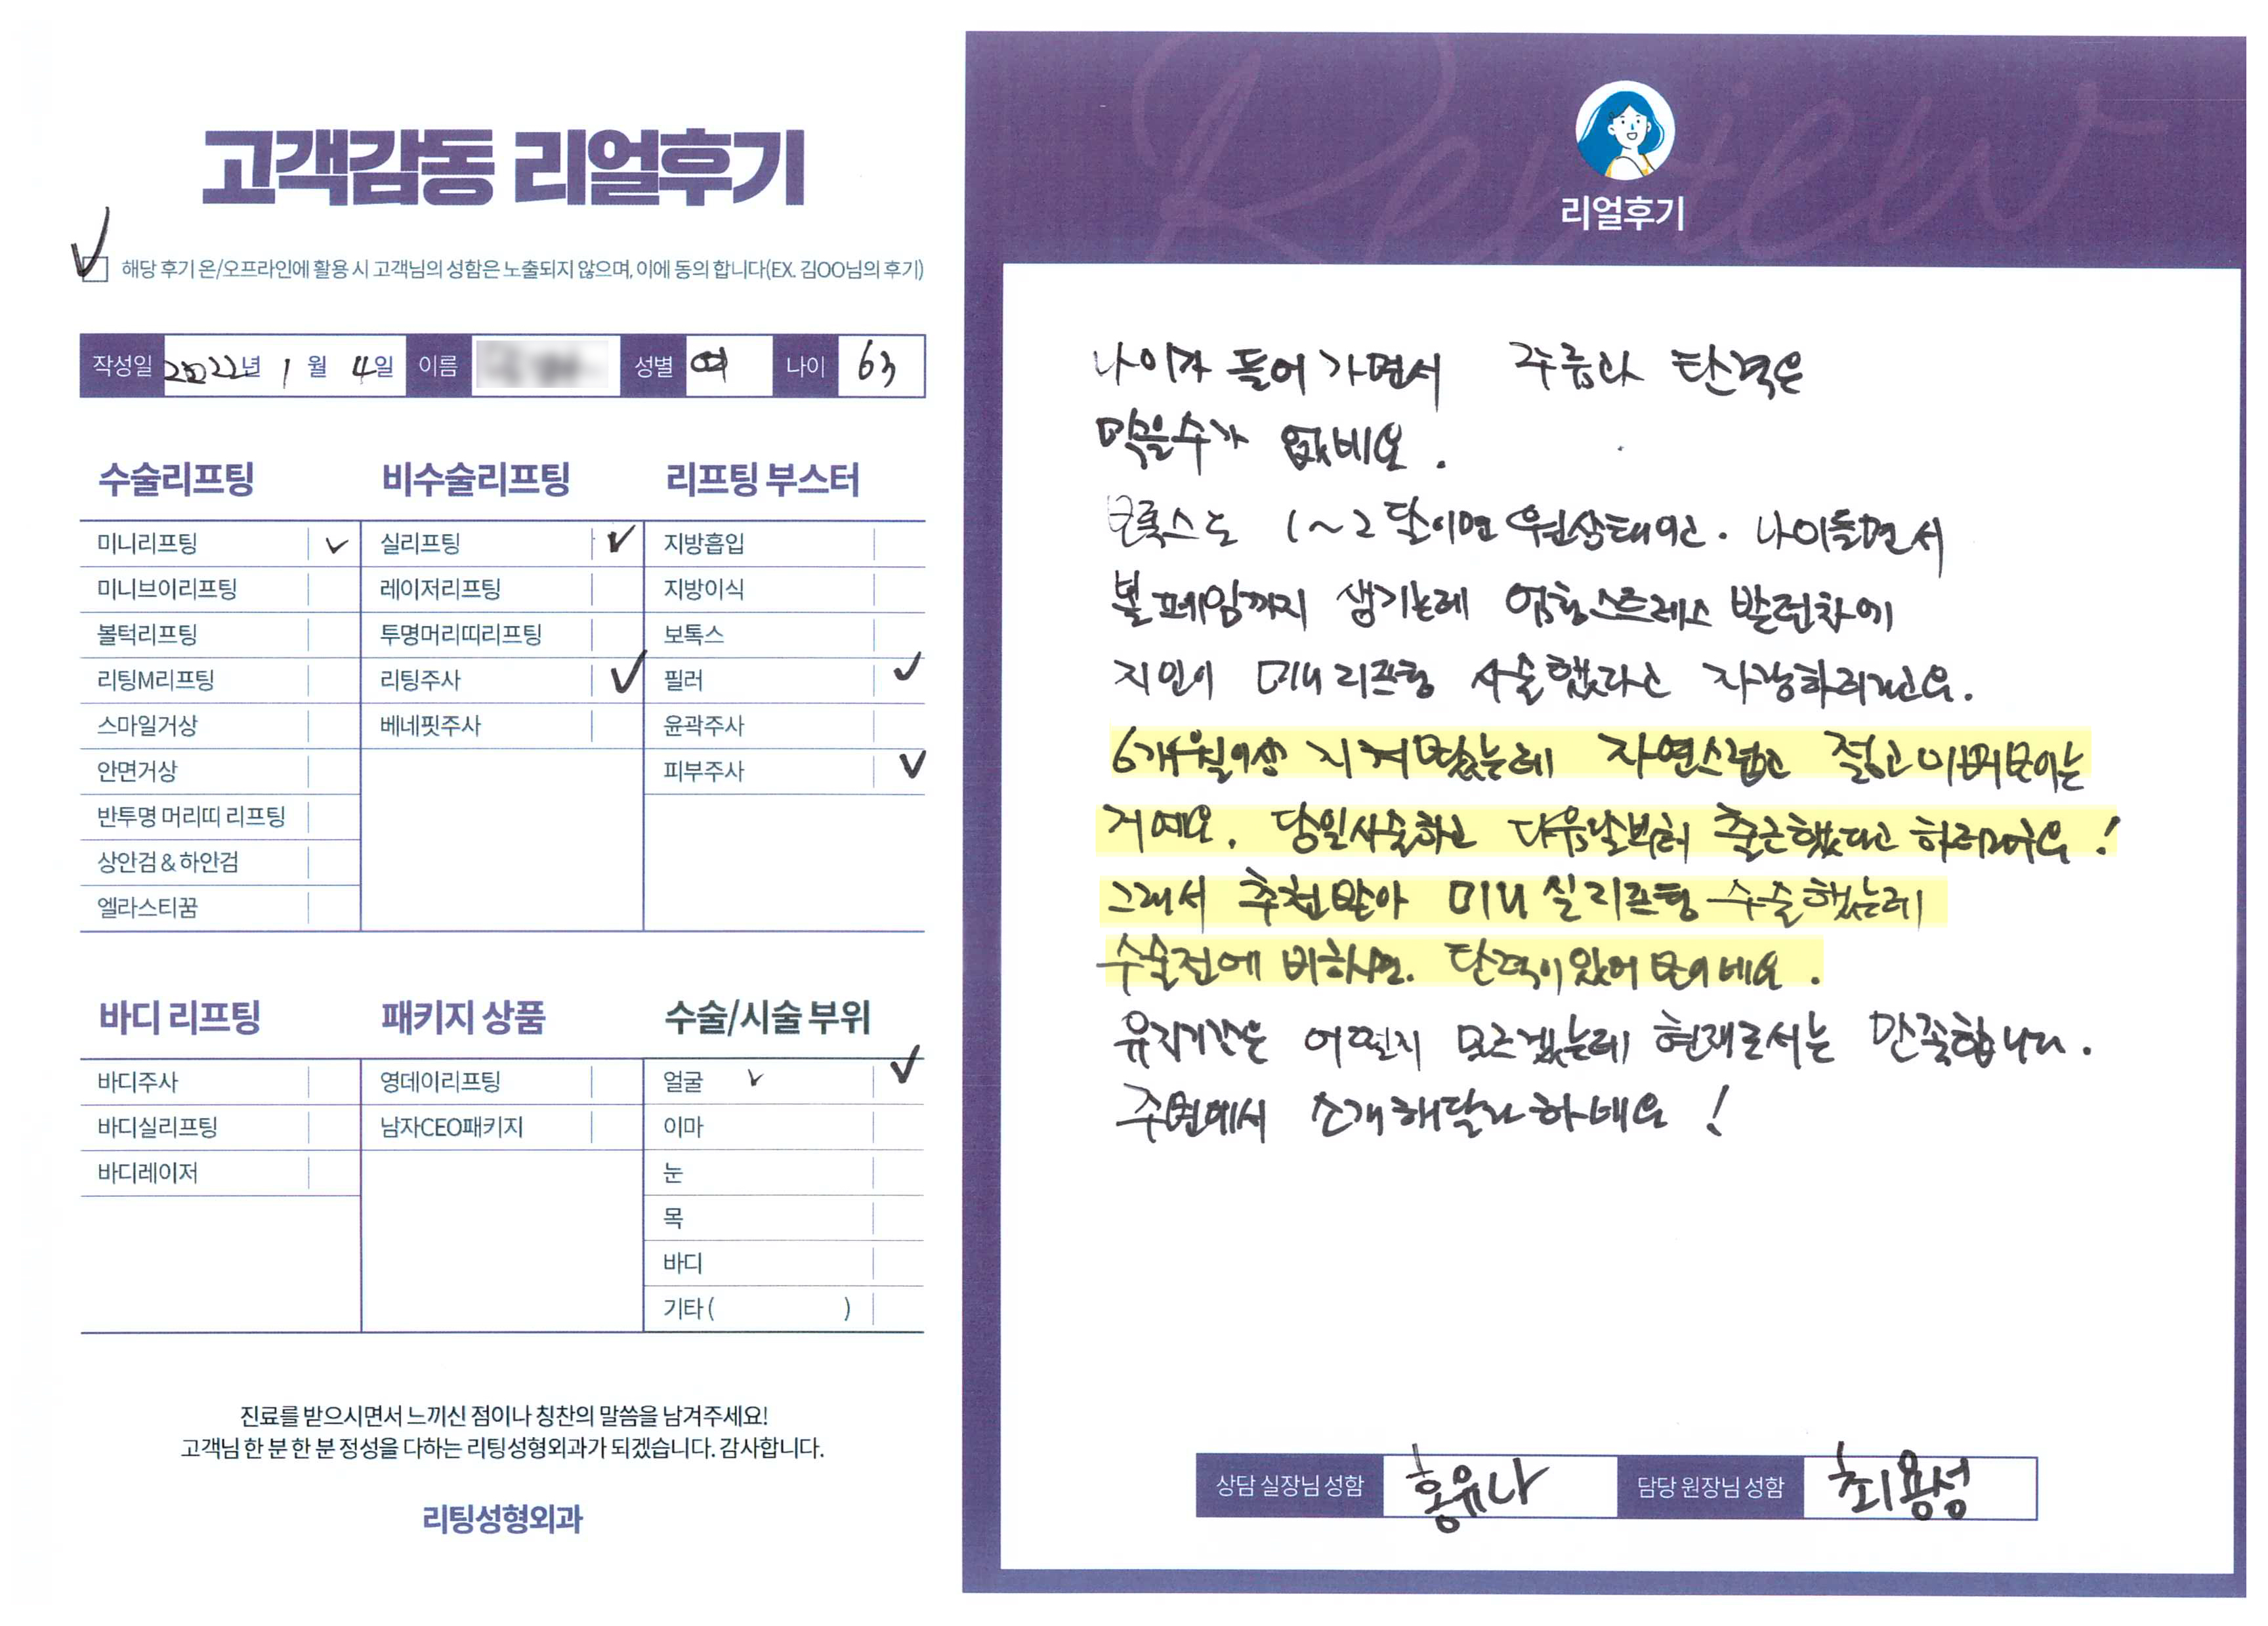 고객감동 리얼후기
해당 후기 온/오프라인에 활용 시 고객님의 성함은 노출되지 않으며, 이에 동의 합니다(EX. 김OO님의 후기)
작성일 2022년 1월 4일 이름 성별 여 나이 63
수술리프팅 비수술리프팅 리프팅 부스터
미니리프팅 ✓ 실리프팅 ✓ 지방흡입
미니브이리프팅 레이저리프팅 지방이식
볼턱리프팅 투명머리띠리프팅 보톡스
리팅M리프팅 리팅주사 ✓ 필러 ✓
스마일거상 베네핏주사 윤곽주사
안면거상 피부주사 ✓
반투명 머리띠 리프팅
상안검 & 하안검
엘라스티꿈
바디 리프팅 패키지 상품 수술/시술 부위
바디주사 영데이리프팅 얼굴 ✓ ✓
바디실리프팅 남자CEO패키지 이마
바디레이저 눈
목
바디
기타 ( )
진료를 받으시면서 느끼신 점이나 칭찬의 말씀을 남겨주세요!
고객님 한 분 한 분 정성을 다하는 리팅성형외과가 되겠습니다. 감사합니다.
리팅성형외과
Review
리얼후기
나이가 들어 가면서 주름과 탄력은
막을수가 없네요.
1~2달이면 원상태이고. 나이들면서
볼 패임까지 생기는데 엄청스트레스 받던차에
지인이 미니리프팅 시술했다고 자랑하러구요.
6개월이상 지켜봤는데 자연스럽고 젊고 이뻐보이는
거예요. 당일시술하고 다음날부터 출근했다고 하더라구요!
그래서 추천받아 미니 실리프팅 수술했는데
수술전에 비하면. 탄력이 있어 보이네요.
유지기간은 어떨지 모르겠는데 현재로서는 만족합니다.
주변에서 소개해달라 하네요!
상담 실장님 성함 홍유나 담당 원장님 성함 최용성